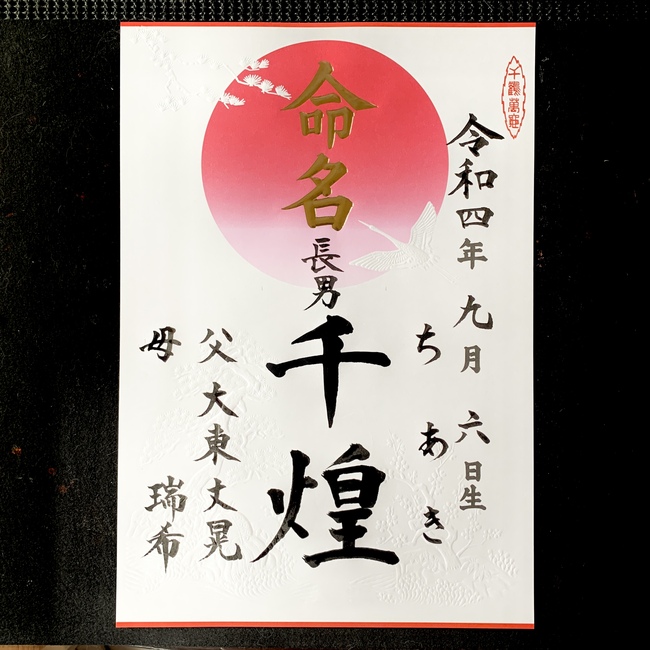 千鶴萬亀
令和四年 九月 六日生
ちあき
命名
長男
千煌
父 大東丈晃
母 瑞希